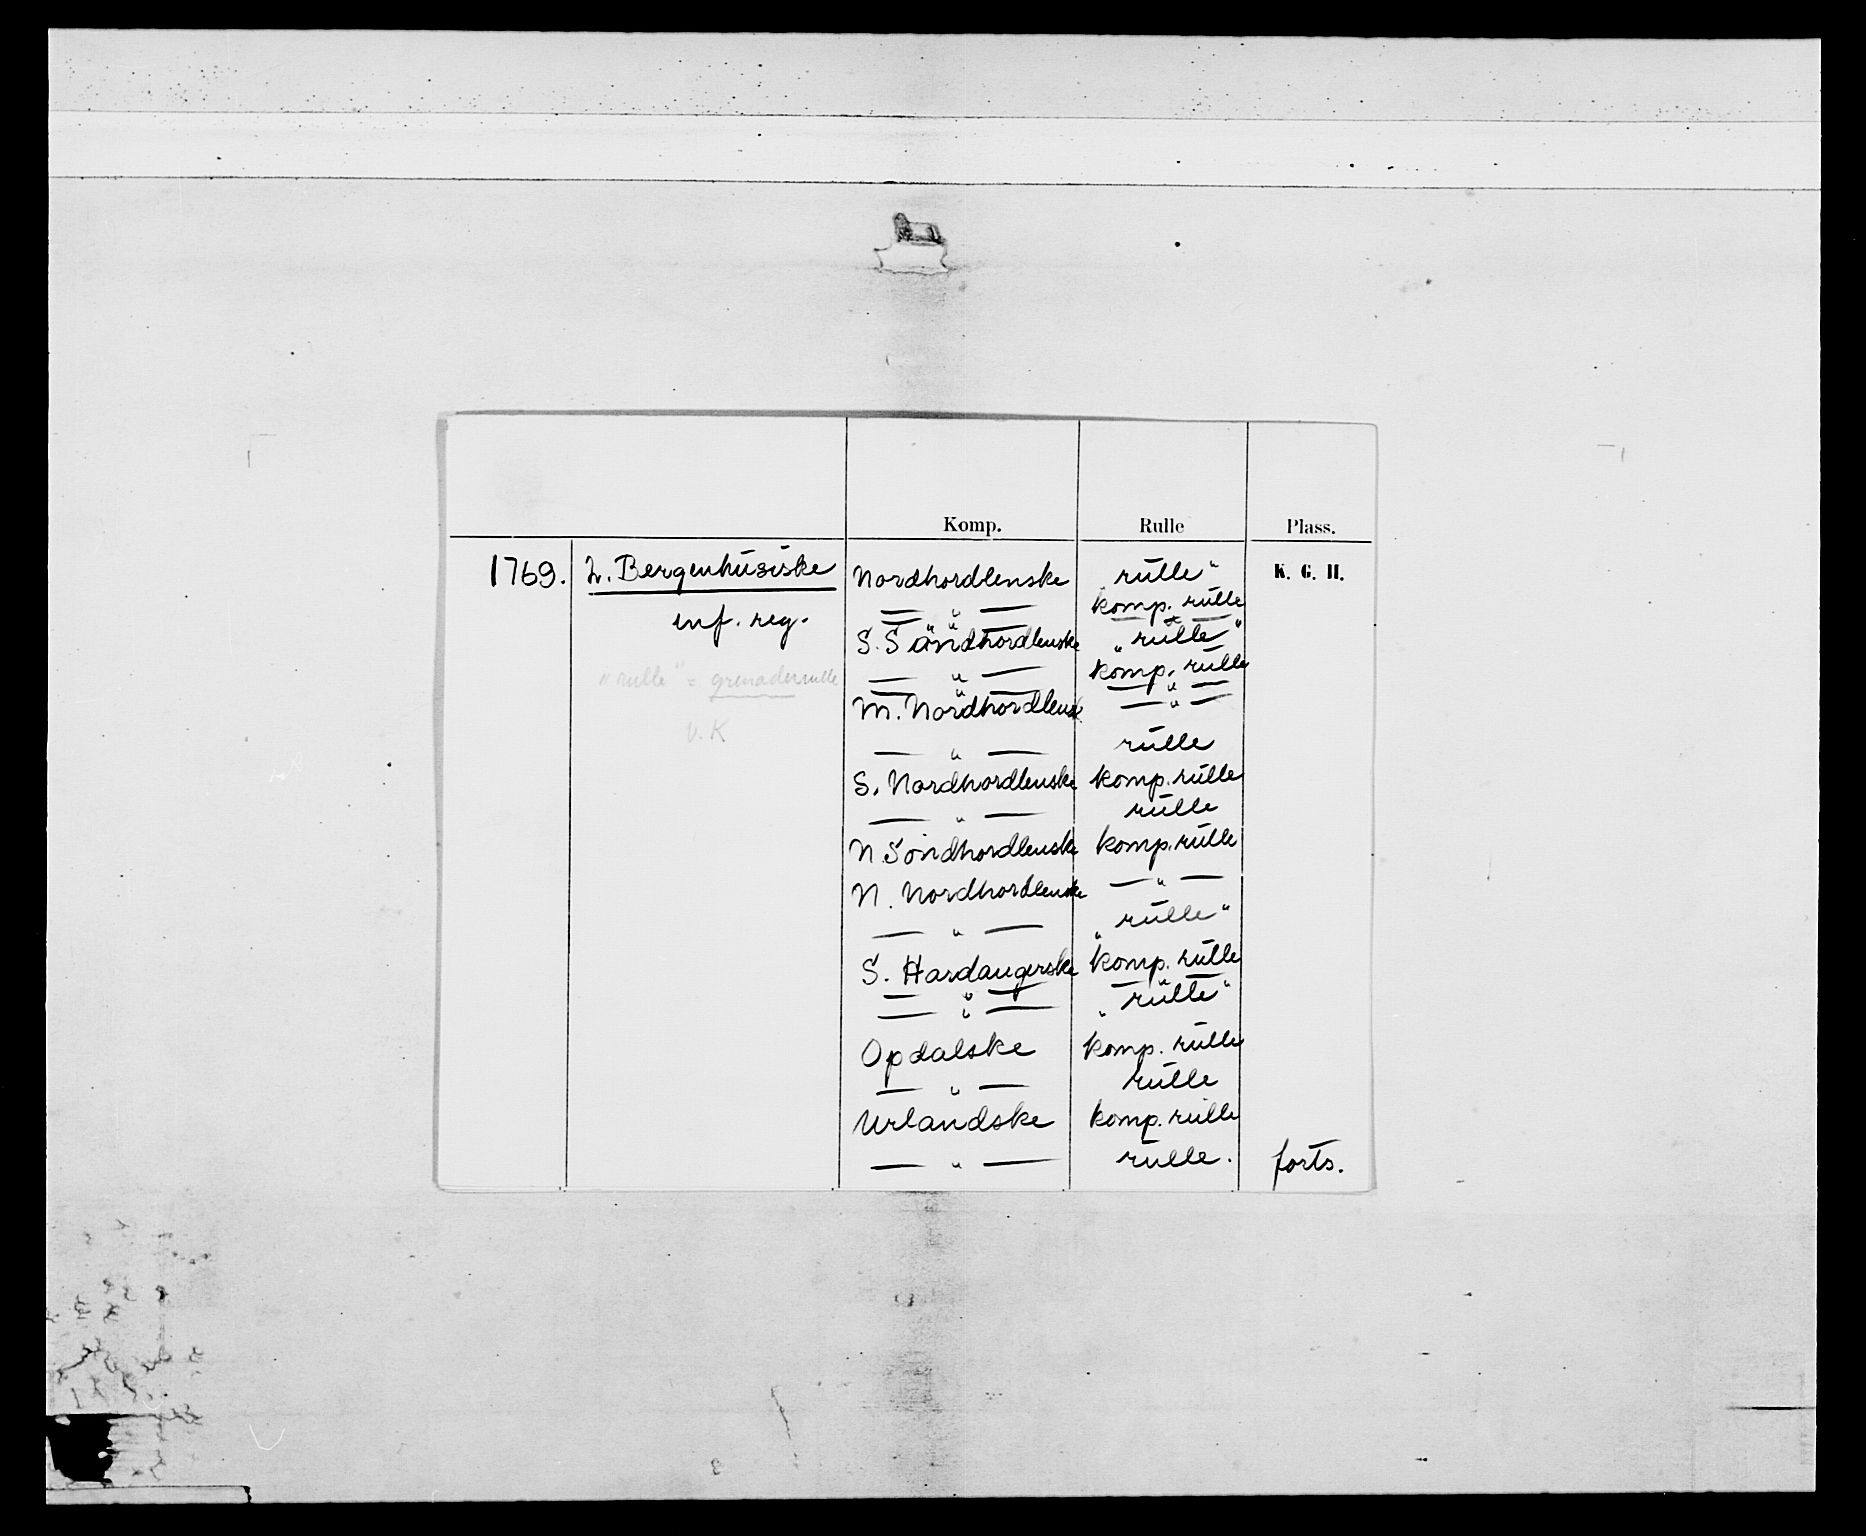 Komp. Rulle Plass.
1769. 2. Bergenhusiske Nordhordlenske rulle" K. G. H.
— " — komp. rulle
inf. reg. — " — — " —
S. Söndhordlenske „rulle"
"rulle" = grenaderrulle — " — komp. rulle
— " — — " —
M. Nordhordlensk — " —
v. K
— " — rulle
S. Nordhordlenske komp. rulle
— " — rulle
N. Söndhordlenske komp. rulle
N. Nordhordlenske — " —
— " — „rulle"
S. Hardangerske komp. rulle
— " — — " —
— " — „rulle"
Opdalske komp. rulle
— " — rulle
Urlandske komp. rulle
— " — rulle. forts.